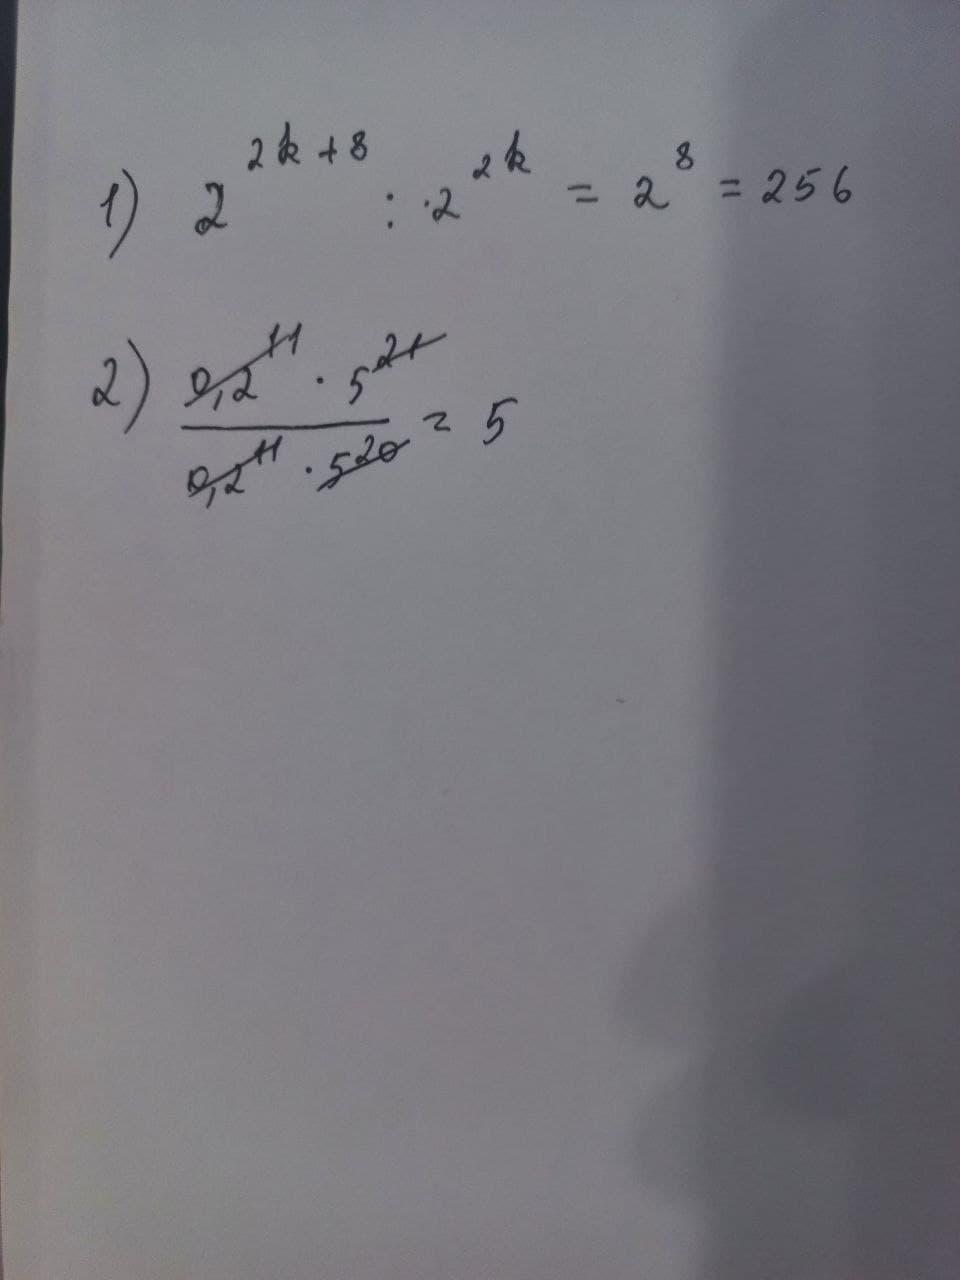 1) 2^{2k+8} : 2^{2k} = 2^8 = 256
2) \frac{0,2^{11} · 5^{21}}{0,2^{11} · 5^{20}} = 5